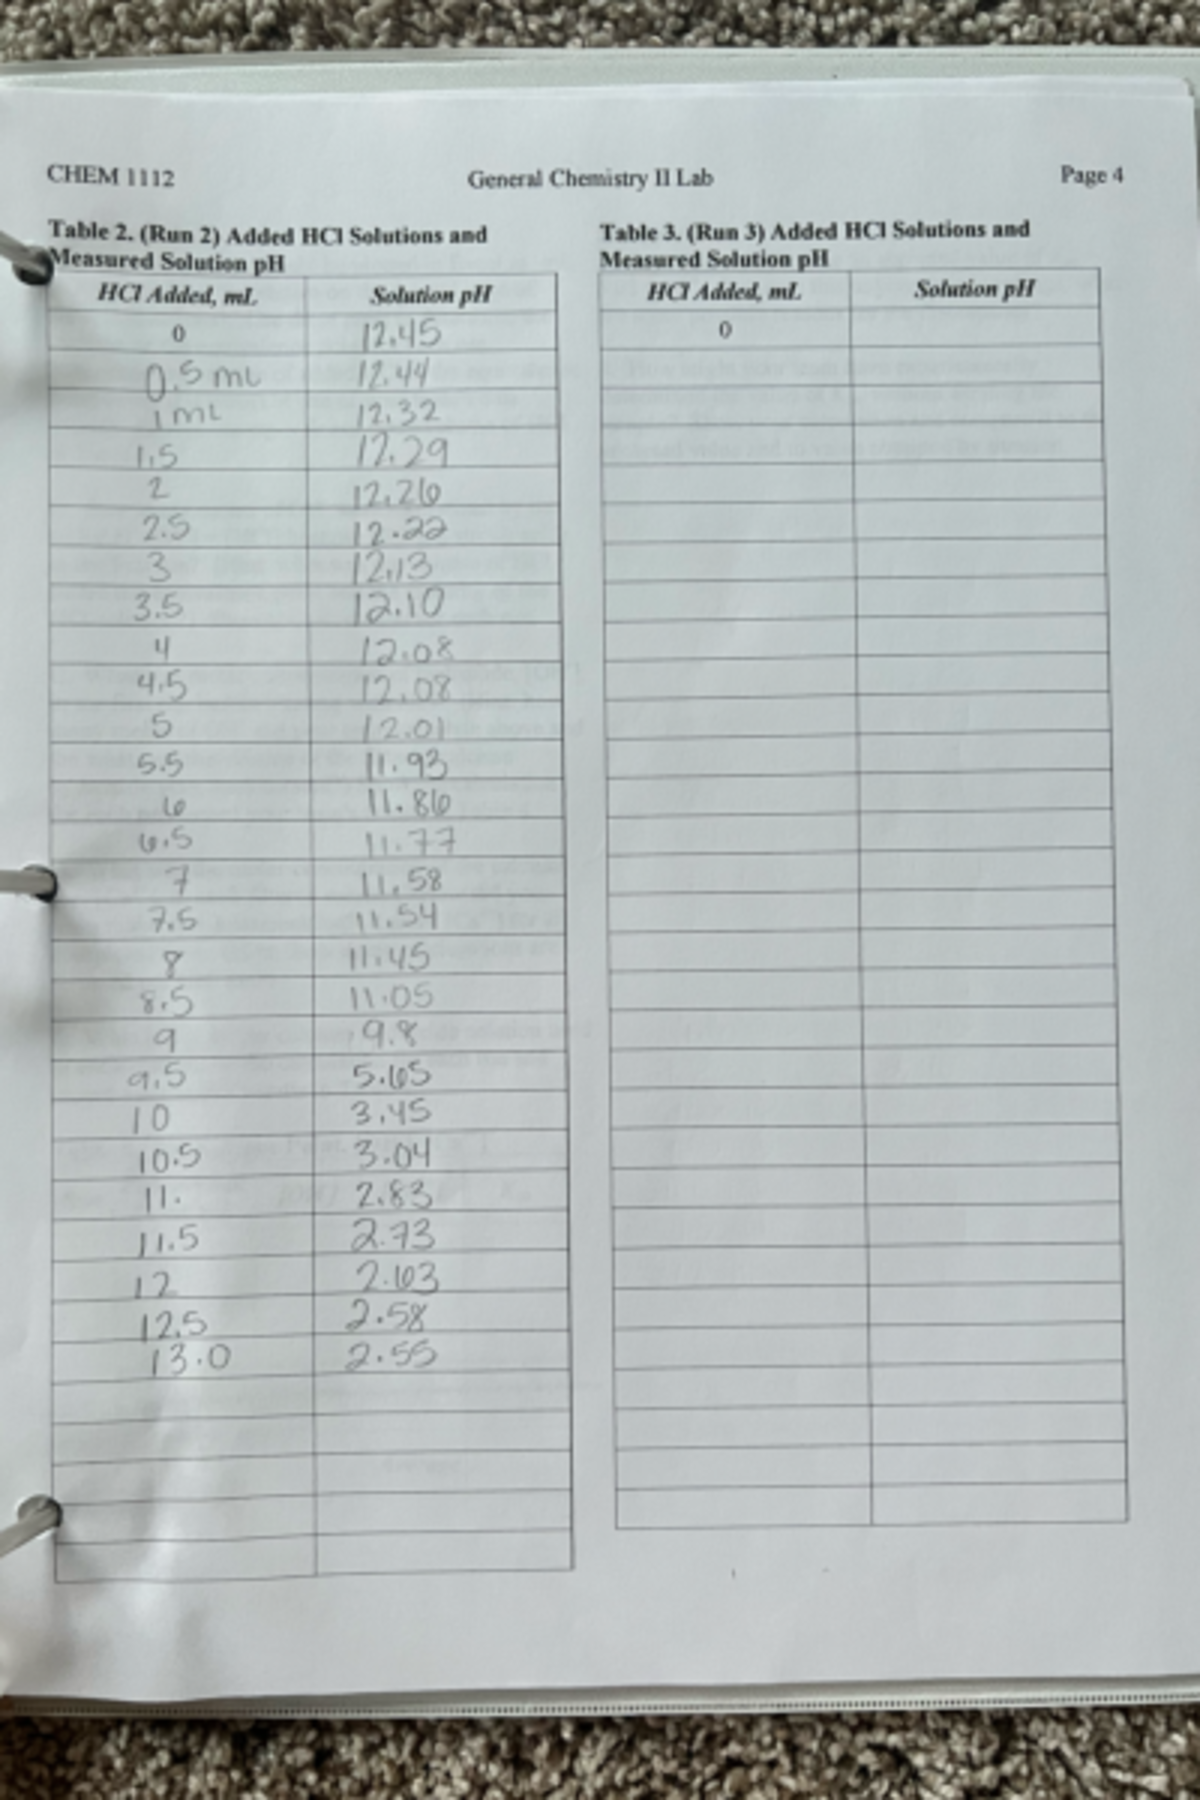 CHEM 1112 General Chemistry II Lab Page 4
Table 2. (Run 2) Added HCl Solutions and
Measured Solution pH
HCl Added, mL Solution pH
0 12.45
0.5 mL 12.44
1 mL 12.32
1.5 12.29
2 12.26
2.5 12.22
3 12.13
3.5 12.10
4 12.08
4.5 12.08
5 12.01
5.5 11.93
6 11.86
6.5 11.77
7 11.58
7.5 11.54
8 11.45
8.5 11.05
9 9.8
9.5 5.65
10 3.45
10.5 3.04
11. 2.83
11.5 2.73
12 2.63
12.5 2.58
13.0 2.55
Table 3. (Run 3) Added HCl Solutions and
Measured Solution pH
HCl Added, mL Solution pH
0